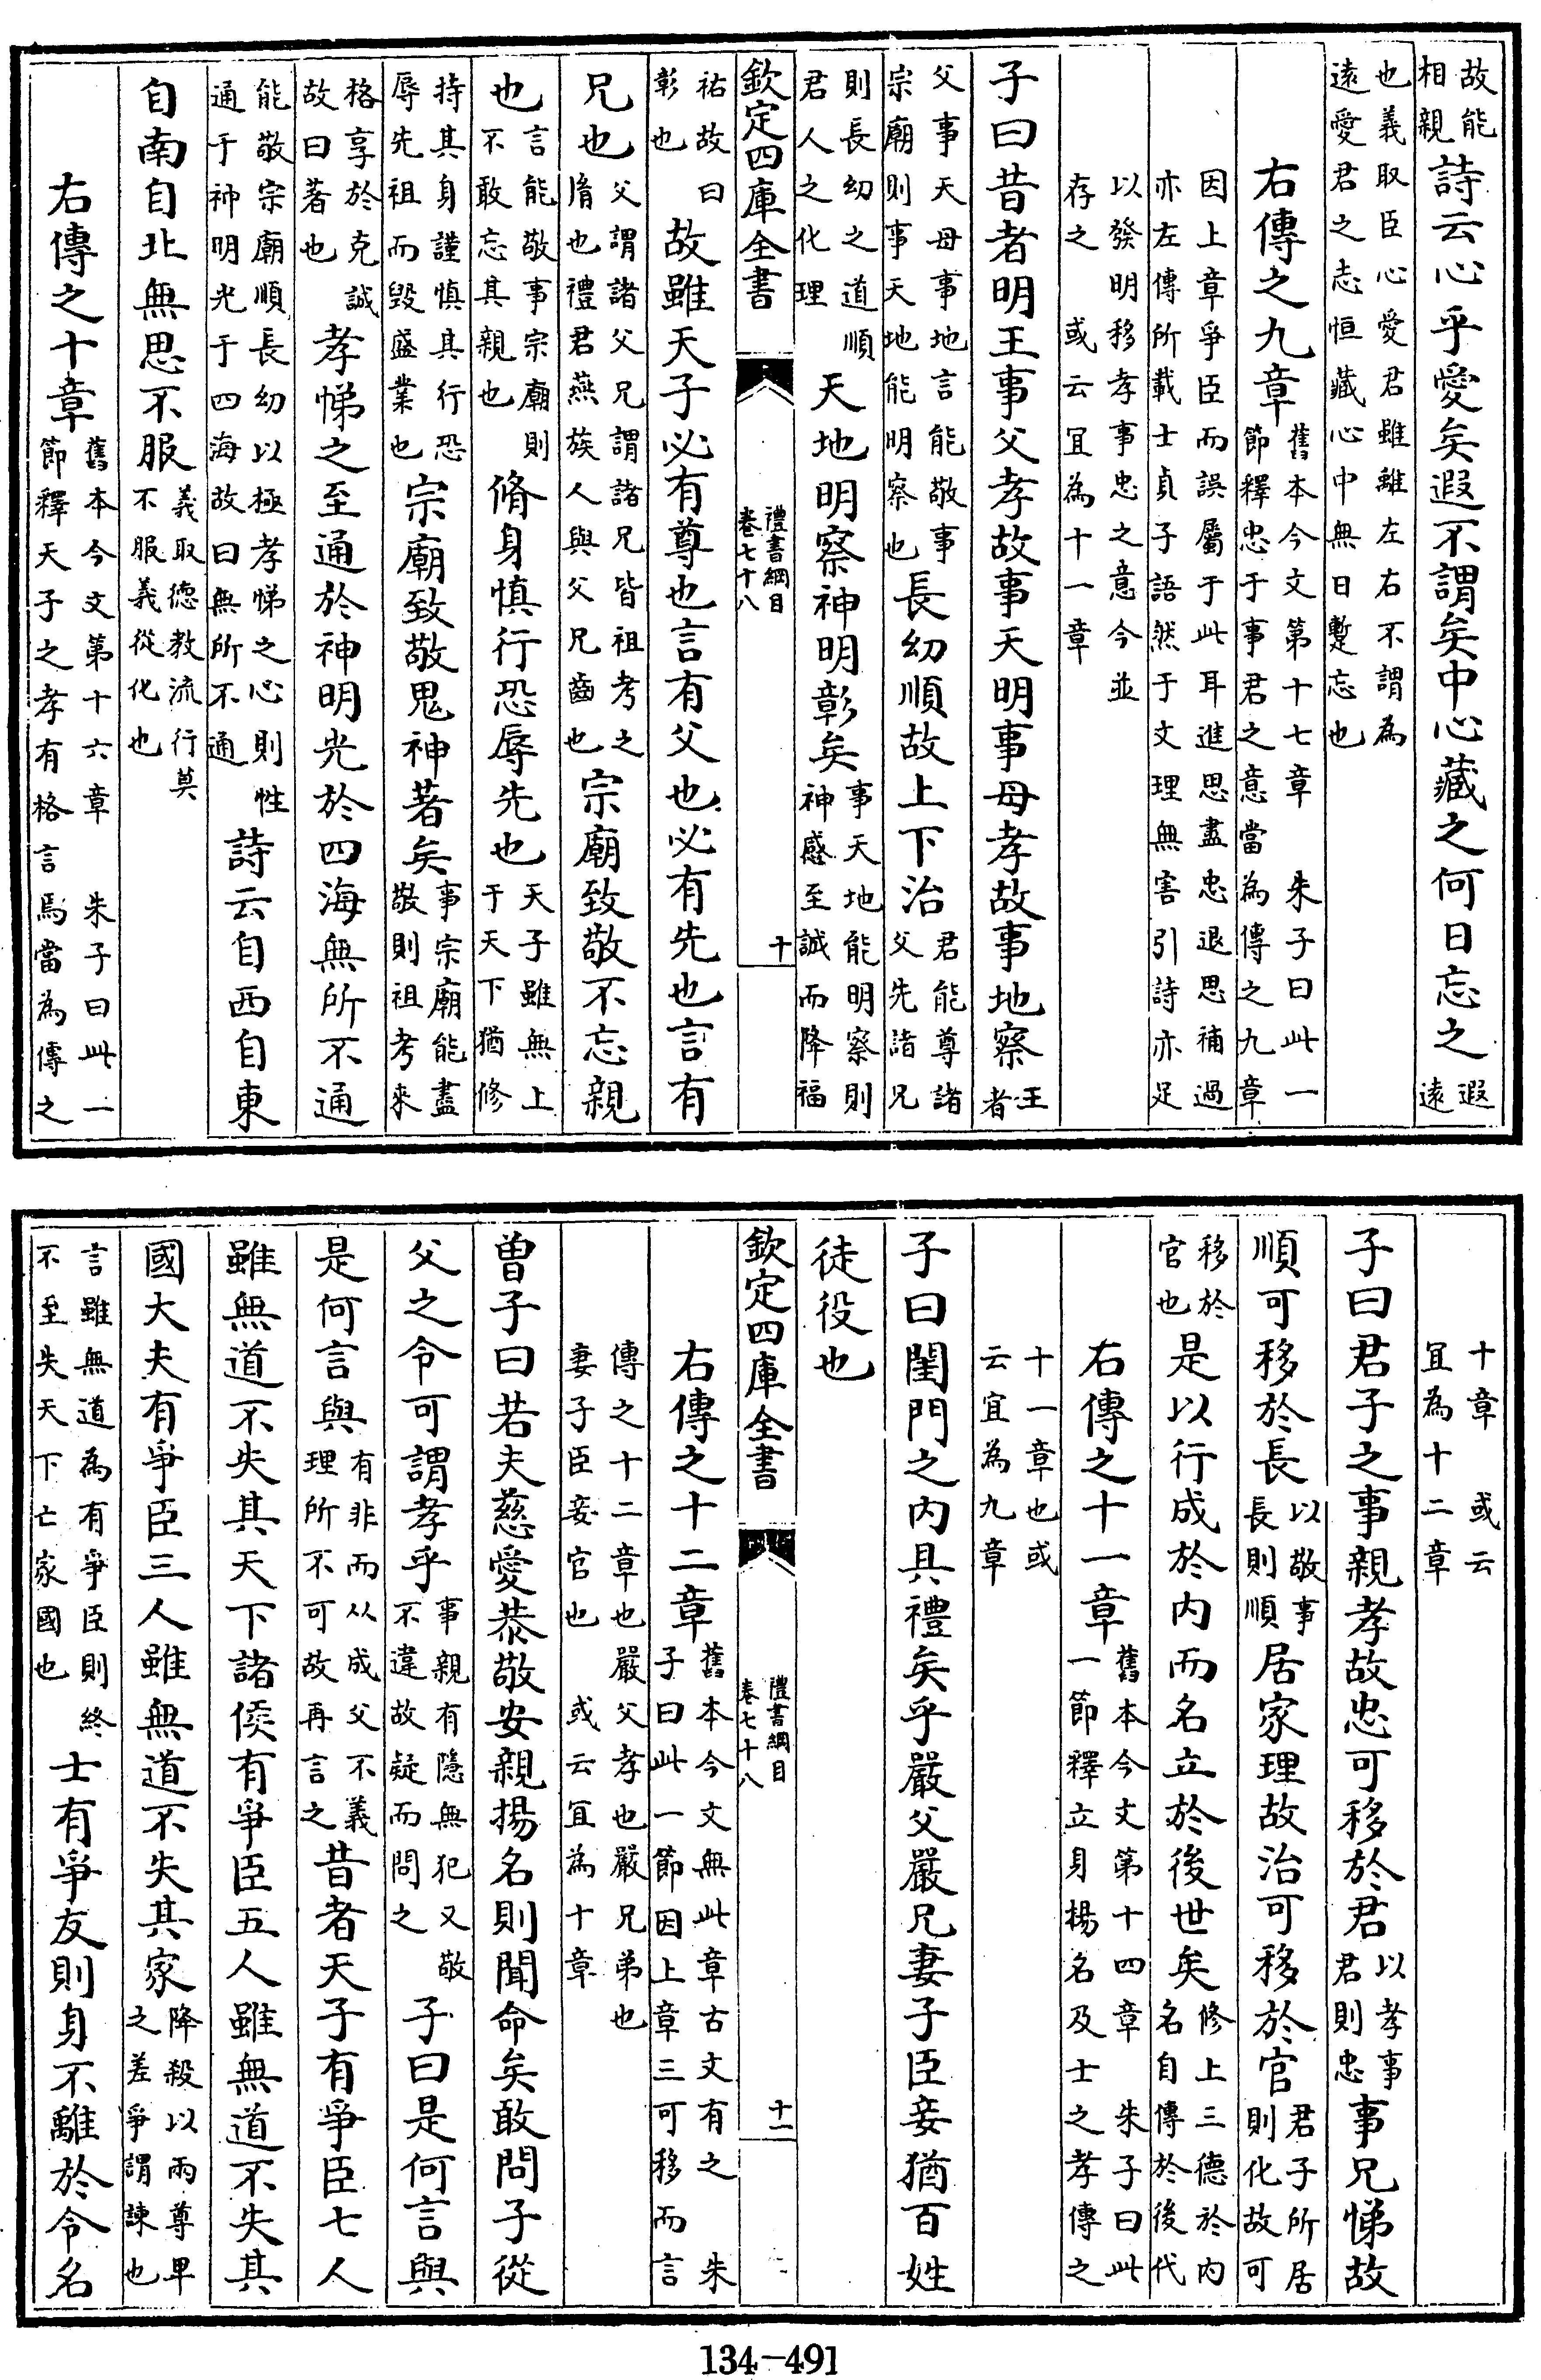 故能相親詩云心乎愛矣遐不謂矣中心藏之何日忘之遐遠
也義取臣心愛君雖離左右不謂為遠愛君之志恒藏心中無日蹔忘也
右傳之九章舊本今文第十七章　朱子曰此一節釋忠于事君之意當為傳之九章
因上章爭臣而誤屬于此耳進思盡忠退思補過亦左傳所載士貞子語然于文理無害引詩亦足
以發明移孝事忠之意今並存之　或云宜為十一章
子曰昔者明王事父孝故事天明事母孝故事地察王者
父事天母事地言能敬事宗廟則事天地能明察也長幼順故上下治君能尊諸父先諸兄
則長幼之道順君人之化理天地明察神明彰矣事天地能明察則神感至誠而降福
欽定四庫全書　禮書綱目卷七十八　十
祐故曰彰也故雖天子必有尊也言有父也必有先也言有
兄也父謂諸父兄謂諸兄皆祖考之脩也禮君燕族人與父兄齒也宗廟致敬不忘親
也言能敬事宗廟則不敢忘其親也脩身慎行恐辱先也天子雖無上于天下猶修
持其身謹慎其行恐辱先祖而毀盛業也宗廟致敬鬼神著矣事宗廟能盡敬則祖考來
格享於克誠故曰著也孝悌之至通於神明光於四海無所不通
能敬宗廟順長幼以極孝悌之心則性通于神明光于四海故曰無所不通詩云自西自東
自南自北無思不服義取德教流行莫不服義從化也
右傳之十章舊本今文第十六章　朱子曰此一節釋天子之孝有格言焉當為傳之
十章　或云宜為十二章
子曰君子之事親孝故忠可移於君以孝事君則忠事兄悌故
順可移於長以敬事長則順居家理故治可移於官君子所居則化故可
移於官也是以行成於內而名立於後世矣修上三德於內名自傳於後代
右傳之十一章舊本今文第十四章　朱子曰此一節釋立身揚名及士之孝傳之
十一章也或云宜為九章
子曰閨門之內具禮矣乎嚴父嚴兄妻子臣妾猶百姓
徒役也
欽定四庫全書　禮書綱目卷七十八　十一
右傳之十二章舊本今文無此章古文有之　朱子曰此一節因上章三可移而言
傳之十二章也嚴父孝也嚴兄弟也妻子臣妾官也　或云宜為十章
曾子曰若夫慈愛恭敬安親揚名則聞命矣敢問子從
父之令可謂孝乎事親有隱無犯又敬不違故疑而問之子曰是何言與
是何言與有非而从成父不義理所不可故再言之昔者天子有爭臣七人
雖無道不失其天下諸侯有爭臣五人雖無道不失其
國大夫有爭臣三人雖無道不失其家降殺以兩尊卑之差爭謂諫也
言雖無道為有爭臣則終不至失天下亡家國也士有爭友則身不離於令名
134-491